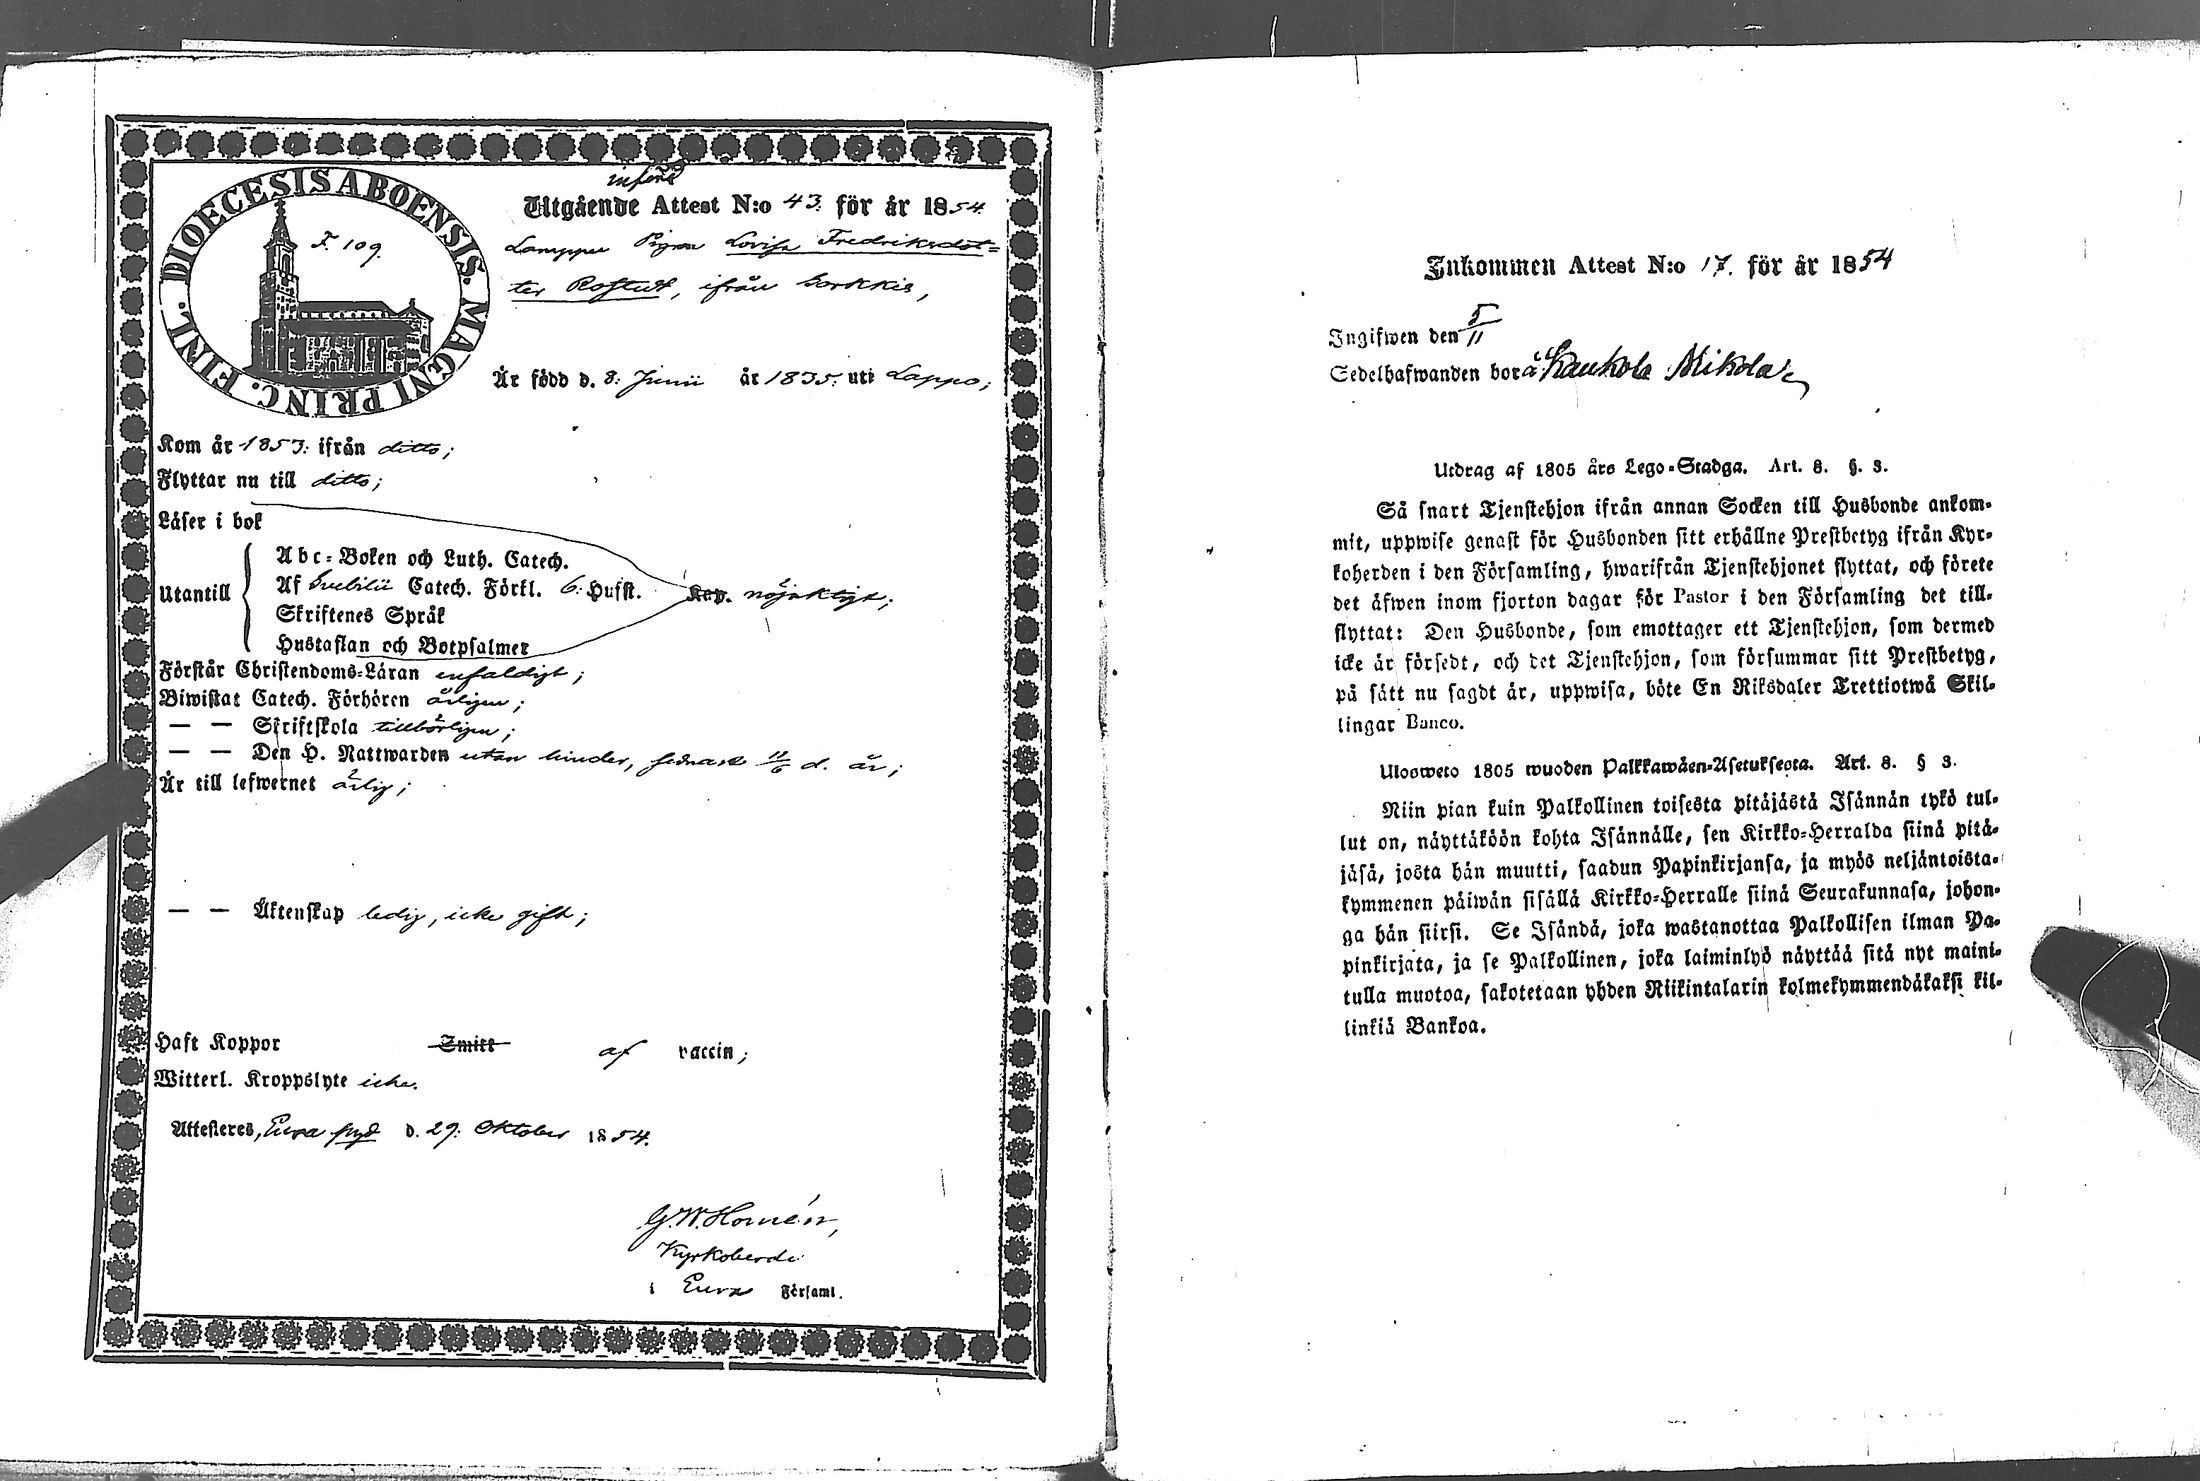 införd
Utgående Attest N:o 43. för år 1854.
Pigan Lovisa Fredriksdot=
ter Rostedt, ifrån Sorkkis,
DIOECESIS ABOENSIS. MAGNI PRINC. FINL.
F. 109.
Är född d. 8: Junii år 1835. uti Lappo;
Kom år 1853: ifrån ditto;
Flyttar nu till ditto;
Läser i bok
Utantill
Abc=Boken och Luth. Catech.
Af Svebilii Catech. Förkl. 6. Hufst. Kap. nöjaktigt;
Skriftenes Språk
Hustaflan och Botpsalmer
Förstår Christendoms=Läran enfaldigt;
Biwistat Catech. Förhören årligen;
— — Skriftskola tillbörligen;
— — Den H. Nattwarden utan hinder, sednast 11/6 d. år;
Är till lefwernet ärlig;
— — Äktenskap ledig, icke gift;
Haft Koppor Smitt af vaccin;
Witterl. Kroppslyte icke.
Attesteres, Eura pgd d. 29: Oktober 1854.
G. W. Homén,
Kyrkoherde
i Eura Församl.
Inkommen Attest N:o 17. för år 1854
Ingifwen den 5/11
Sedelhafwanden bor å Kaukola Mikola
Utdrag af 1805 års Lego=Stadga. Art. 8. §. 3.
Så snart Tjenstehjon ifrån annan Socken till Husbonde ankom-
mit, uppwise genast för Husbonden sitt erhållne Prestbetyg ifrån Kyr-
koherden i den Församling, hwarifrån Tjenstehjonet flyttat, och förete
det äfwen inom fjorton dagar för Pastor i den Församling det till-
flyttat: Den Husbonde, som emottager ett Tjenstehjon, som dermed
icke är försedt, och det Tjenstehjon, som försummar sitt Prestbetyg,
på sätt nu sagdt är, uppwisa, böte En Riksdaler Trettiotwå Skil-
lingar Banco.
Ulosweto 1805 wuoden Palkkawäen=Asetuksesta. Art. 8. § 3.
Niin pian kuin Palkollinen toisesta pitäjästä Isännän tykö tul-
lut on, näyttäköön kohta Isännälle, sen Kirkko=Herralda siinä pitä-
jäsä, josta hän muutti, saadun Papinkirjansa, ja myös neljäntoista-
kymmenen päiwän sisällä Kirkko=Herralle siinä Seurakunnasa, johon-
ga hän siirsi. Se Isändä, joka wastanottaa Palkollisen ilman Pa-
pinkirjata, ja se Palkollinen, joka laiminlyö näyttää sitä nyt maini-
tulla muotoa, sakotetaan yhden Riikintalarin kolmekymmendäkaksi kil-
linkiä Bankoa.